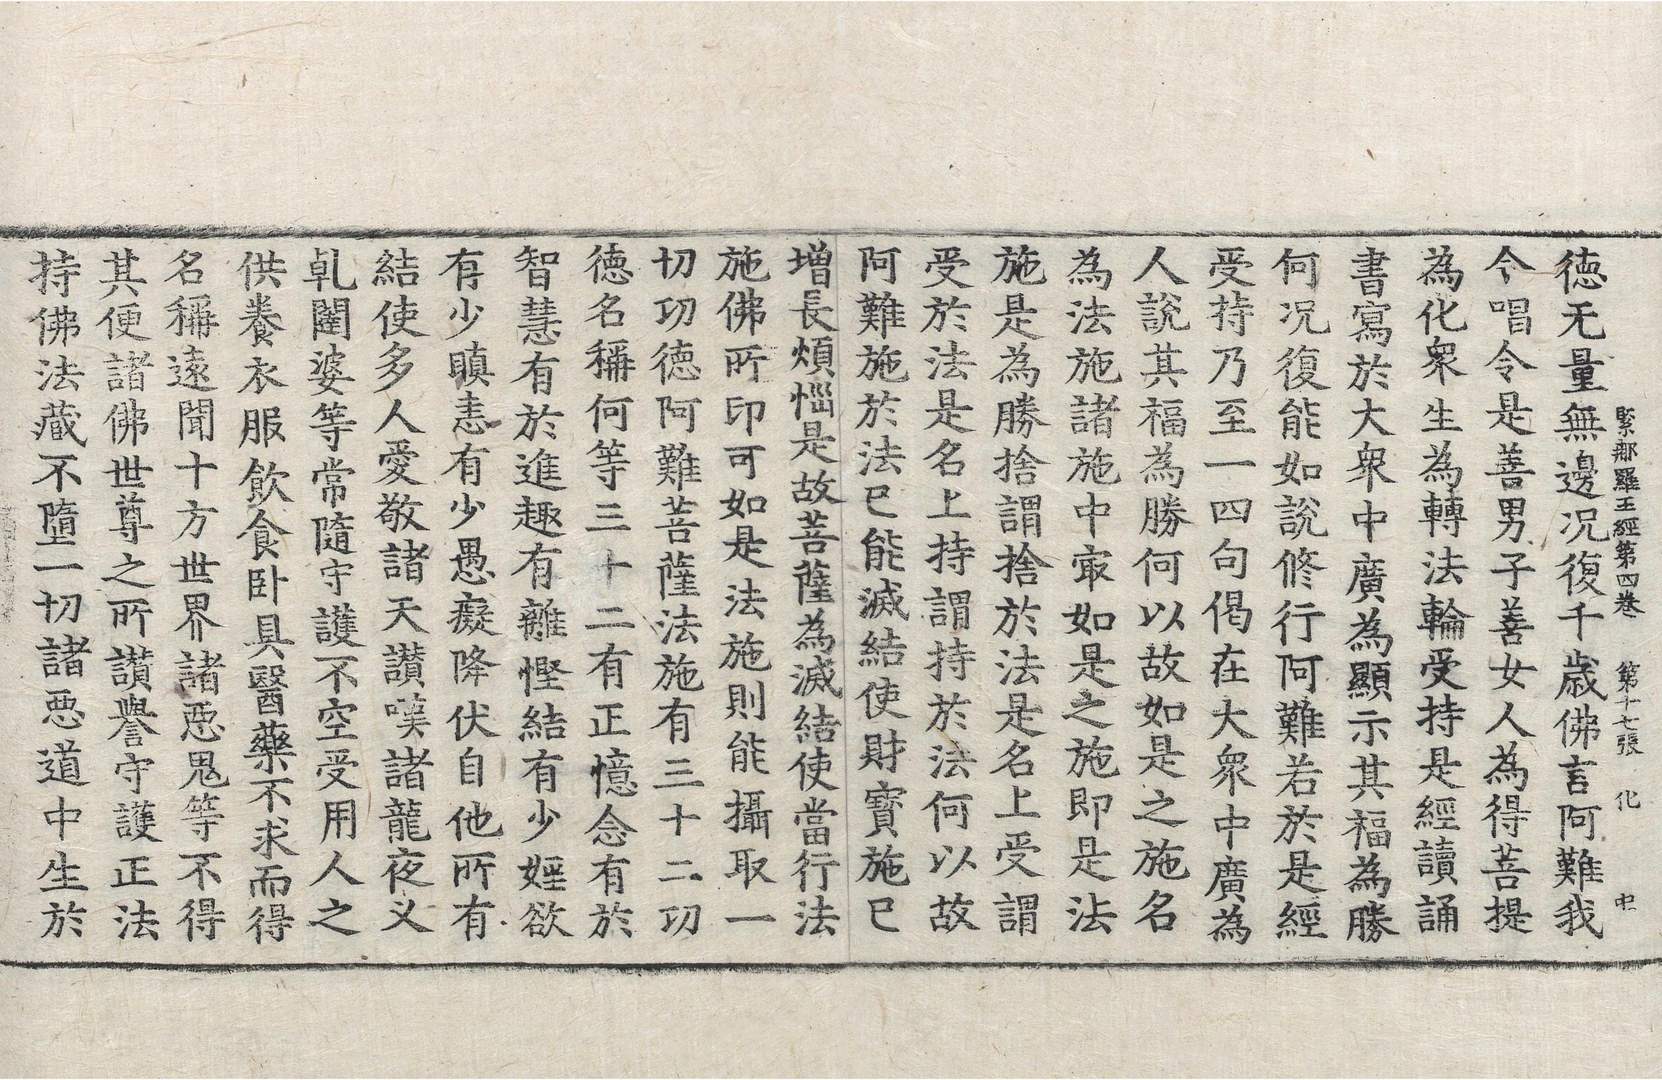 緊那羅王經第四卷 第十七張 化
德无量無邊況復千歲佛言阿難我
今唱令是善男子善女人為得菩提
為化衆生為轉法輪受持是經讀誦
書寫於大衆中廣為顯示其福為勝
何況復能如說修行阿難若於是經
受持乃至一四句偈在大衆中廣為
人說其福為勝何以故如是之施名
為法施諸施中㝡如是之施即是法
施是為勝捨謂捨於法是名上受謂
受於法是名上持謂持於法何以故
阿難施於法已能滅結使財寶施已
增長煩惱是故菩薩為滅結使當行法
施佛所印可如是法施則能攝取一
切功德阿難菩薩法施有三十二功
德名稱何等三十二有正憶念有於
智慧有於進趣有離慳結有少婬欲
有少瞋恚有少愚癡降伏自他所有
結使多人愛敬諸天讃嘆諸龍夜叉
乹闥婆等常隨守護不空受用人之
供養衣服飲食卧具醫藥不求而得
名稱遠聞十方世界諸惡鬼等不得
其便諸佛世尊之所讃譽守護正法
持佛法藏不墮一切諸惡道中生於